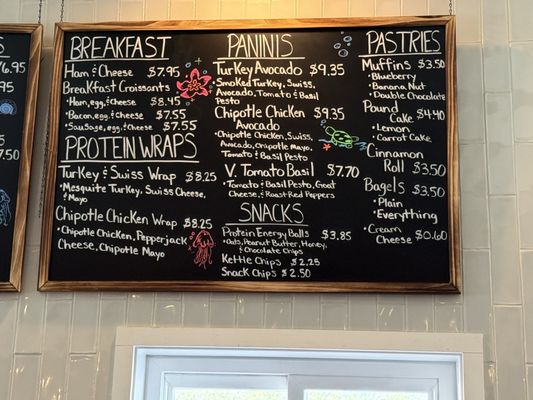 6.95
.95
.95
5
7.50
BREAKFAST
Ham & Cheese $7.95
Breakfast Croissants
• Ham, egg, & Cheese $8.45
• Bacon, egg, & Cheese $7.55
• Sausage, egg, & Cheese $7.55
PROTEIN WRAPS
Turkey & Swiss Wrap $8.25
• Mesquite Turkey, Swiss Cheese,
& Mayo
Chipotle Chicken Wrap $8.25
• Chipotle Chicken, Pepperjack
Cheese, Chipotle Mayo
PANINIS
Turkey Avocado $9.35
Smoked Turkey, Swiss,
Avocado, Tomato & Basil
Pesto
Chipotle Chicken $9.35
Avocado
• Chipotle Chicken, Swiss,
Avocado, Chipotle Mayo,
Tomato & Basil Pesto
V. Tomato Basil $7.70
• Tomato & Basil Pesto, Goat
Cheese, & Roast Red Peppers
SNACKS
Protein Energy Balls $3.85
• Oats, Peanut Butter, Honey,
& Chocolate Chips
Kettle Chips $2.25
Snack Chips $2.50
PASTRIES
Muffins $3.50
• Blueberry
• Banana Nut
• Double Chocolate
Pound
Cake $4.40
• Lemon
• Carrot Cake
Cinnamon
Roll $3.50
Bagels $3.50
• Plain
• Everything
• Cream
Cheese $0.60